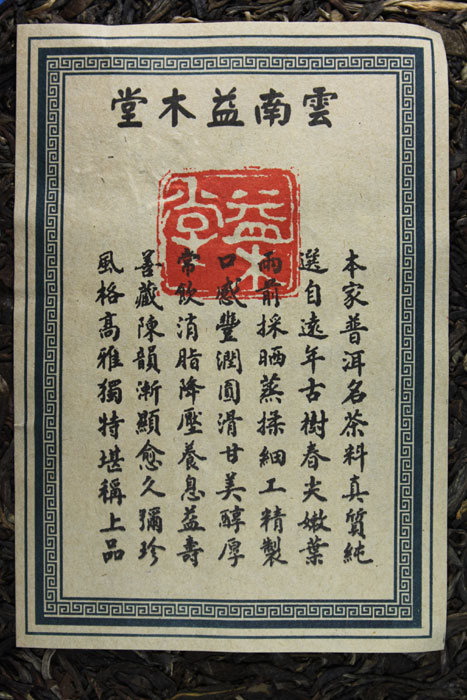 雲南益木堂
益木堂
本家普洱名茶料真質純
選自遠年古樹春尖嫩葉
雨前採晒蒸揉細工精製
口感豐潤圓滑甘美醇厚
常飲消脂降壓養息益壽
善藏陳韻漸顯愈久彌珍
風格高雅獨特堪稱上品